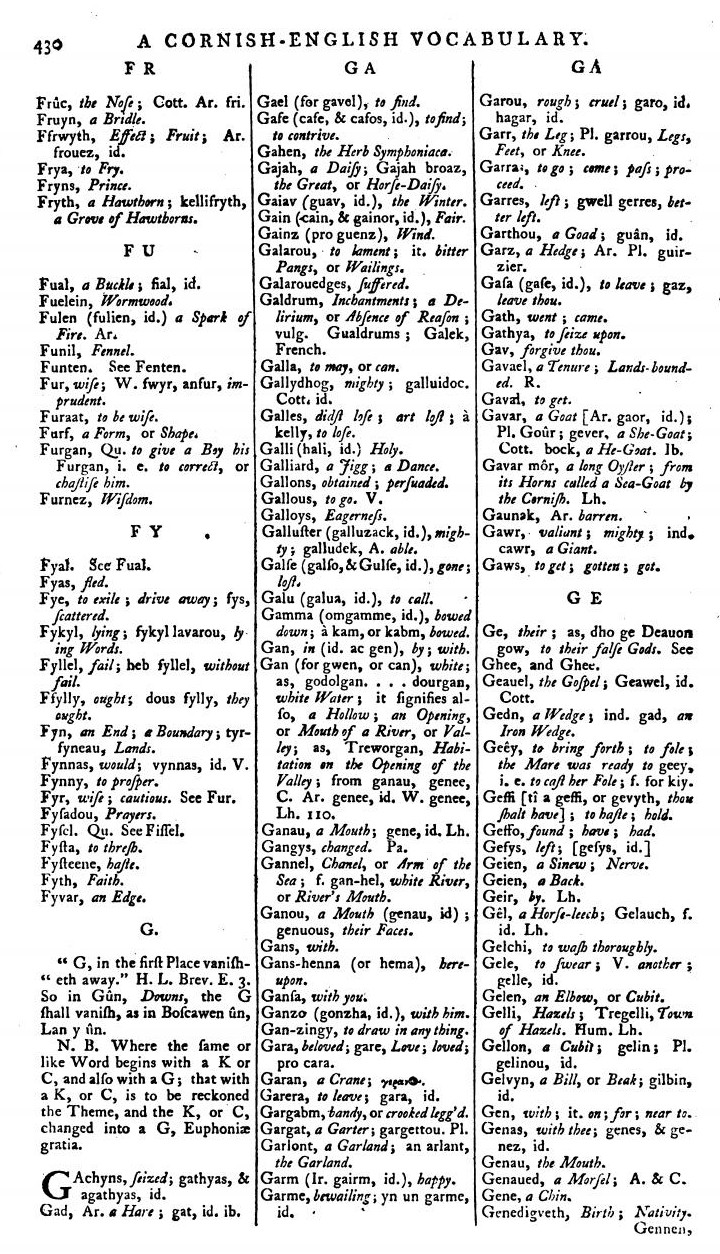 430
A CORNISH-ENGLISH VOCABULARY.
F R
Frûc, the Noſe; Cott. Ar. fri.
Fruyn, a Bridle.
Ffrwyth, Effect; Fruit; Ar.
frouez, id.
Frya, to Fry.
Fryns, Prince.
Fryth, a Hawthorn; kellifryth,
a Grove of Hawthorns.
F U
Fual, a Buckle; fial, id.
Fuelein, Wormwood.
Fulen (fulien, id.) a Spark of
Fire. Ar.
Funil, Fennel.
Funten. See Fenten.
Fur, wiſe; W. fwyr, anfur, im-
prudent.
Furaat, to be wiſe.
Furf, a Form, or Shape.
Furgan, Qu. to give a Boy his
Furgan, i. e. to correct, or
chaſtiſe him.
Furnez, Wiſdom.
F Y
Fyal. See Fual.
Fyas, fled.
Fye, to exile; drive away; fys,
ſcattered.
Fykyl, lying; fykyl lavarou, ly
ing Words.
Fyllel, fail; heb fyllel, without
fail.
Ffylly, ought; dous fylly, they
ought.
Fyn, an End; a Boundary; tyr-
fyneau, Lands.
Fynnas, would; vynnas, id. V.
Fynny, to proſper.
Fyr, wiſe; cautious. See Fur.
Fyſadou, Prayers.
Fyſcl. Qu. See Fiſſel.
Fyſta, to threſh.
Fyſteene, haſte.
Fyth, Faith.
Fyvar, an Edge.
G.
“ G, in the firſt Place vaniſh-
“ eth away.” H. L. Brev. E. 3.
So in Gûn, Downs, the G
ſhall vaniſh, as in Boſcawen ûn,
Lan y ûn.
N. B. Where the ſame or
like Word begins with a K or
C, and alſo with a G; that with
a K, or C, is to be reckoned
the Theme, and the K, or C,
changed into a G, Euphoniæ
gratia.
GAchyns, ſeized; gathyas, &
agathyas, id.
Gad, Ar. a Hare; gat, id. ib.
G A
Gael (for gavel), to find.
Gafe (cafe, & cafos, id.), to find;
to contrive.
Gahen, the Herb Symphoniaca.
Gajah, a Daiſy; Gajah broaz,
the Great, or Horſe-Daiſy.
Gaiav (guav, id.), the Winter.
Gain (cain, & gainor, id.), Fair.
Gainz (pro guenz), Wind.
Galarou, to lament; it. bitter
Pangs, or Wailings.
Galarouedges, ſuffered.
Galdrum, Inchantments; a De-
lirium, or Abſence of Reaſon;
vulg. Gualdrums; Galek,
French.
Galla, to may, or can.
Gallydhog, mighty; galluidoc.
Cott. id.
Galles, didſt loſe; art loſt; à
kelly, to loſe.
Galli (hali, id.) Holy.
Galliard, a Jigg; a Dance.
Gallons, obtained; perſuaded.
Gallous, to go. V.
Galloys, Eagerneſs.
Galluſter (galluzack, id.), migh-
ty; galludek, A. able.
Galſe (galſo, & Gulſe, id.), gone;
loſt.
Galu (galua, id.), to call.
Gamma (omgamme, id.), bowed
down; à kam, or kabm, bowed.
Gan, in (id. ac gen), by; with.
Gan (for gwen, or can), white;
as, godolgan. . . . dourgan,
white Water; it ſignifies al-
ſo, a Hollow; an Opening,
or Mouth of a River, or Val-
ley; as, Treworgan, Habi-
tation on the Opening of the
Valley; from ganau, genee,
C. Ar. genee, id. W. genee,
Lh. 110.
Ganau, a Mouth; gene, id. Lh.
Gangys, changed. Pa.
Gannel, Chanel, or Arm of the
Sea; f. gan-hel, white River,
or River's Mouth.
Ganou, a Mouth (genau, id);
genuous, their Faces.
Gans, with.
Gans-henna (or hema), here-
upon.
Ganſa, with you.
Ganzo (gonzha, id.), with him.
Gan-zingy, to draw in any thing.
Gara, beloved; gare, Love; loved;
pro cara.
Garan, a Crane; γερανος.
Garera, to leave; gara, id.
Gargabm, bandy, or crooked legg'd.
Gargat, a Garter; gargettou. Pl.
Garlont, a Garland; an arlant,
the Garland.
Garm (Ir. gairm, id.), happy.
Garme, bewailing; yn un garme,
id.
G A
Garou, rough; cruel; garo, id.
hagar, id.
Garr, the Leg; Pl. garrou, Legs,
Feet, or Knee.
Garras, to go; come; paſs; pro-
ceed.
Garres, left; gwell gerres, bet-
ter left.
Garthou, a Goad; guân, id.
Garz, a Hedge; Ar. Pl. guir-
zier.
Gaſa (gaſe, id.), to leave; gaz,
leave thou.
Gath, went; came.
Gathya, to ſeize upon.
Gav, forgive thou.
Gavael, a Tenure; Lands-bound-
ed. R.
Gaval, to get.
Gavar, a Goat [Ar. gaor, id.);
Pl. Goûr; gever, a She-Goat;
Cott. bock, a He-Goat. Ib.
Gavar môr, a long Oyſter; from
its Horns called a Sea-Goat by
the Corniſh. Lh.
Gaunak, Ar. barren.
Gawr, valiant; mighty; ind.
cawr, a Giant.
Gaws, to get; gotten; got.
G E
Ge, their; as, dho ge Deauon
gow, to their falſe Gods. See
Ghee, and Gheê.
Geauel, the Goſpel; Geawel, id.
Cott.
Gedn, a Wedge; ind. gad, an
Iron Wedge.
Geêy, to bring forth; to fole;
the Mare was ready to geey,
i. e. to caſt her Fole; f. for kiy.
Geffi [tî a geffi, or gevyth, thou
ſhalt have]; to haſte; hold.
Geffo, found; have; had.
Gefys, left; [geſys, id.]
Geien, a Sinew; Nerve.
Geien, a Back.
Geir, by. Lh.
Gêl, a Horſe-leech; Gelauch, f.
id. Lh.
Gelchi, to waſh thoroughly.
Gele, to ſwear; V. another;
gelle, id.
Gelen, an Elbow, or Cubit.
Gelli, Hazels; Tregelli, Town
of Hazels. Hum. Lh.
Gellon, a Cubit; gelin; Pl.
gelinou, id.
Gelvyn, a Bill, or Beak; gilbin,
id.
Gen, with; it. on; for; near to.
Genas, with thee; genes, & ge-
nez, id.
Genau, the Mouth.
Genaued, a Morſel; A. & C.
Gene, a Chin.
Genedigveth, Birth; Nativity.
Gennen,